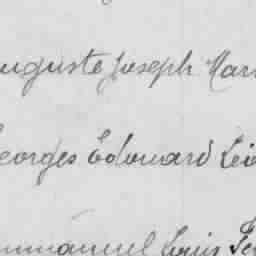 uguste Joseph Mar
eorges Edouard Lé
mmanuel Louis Fe